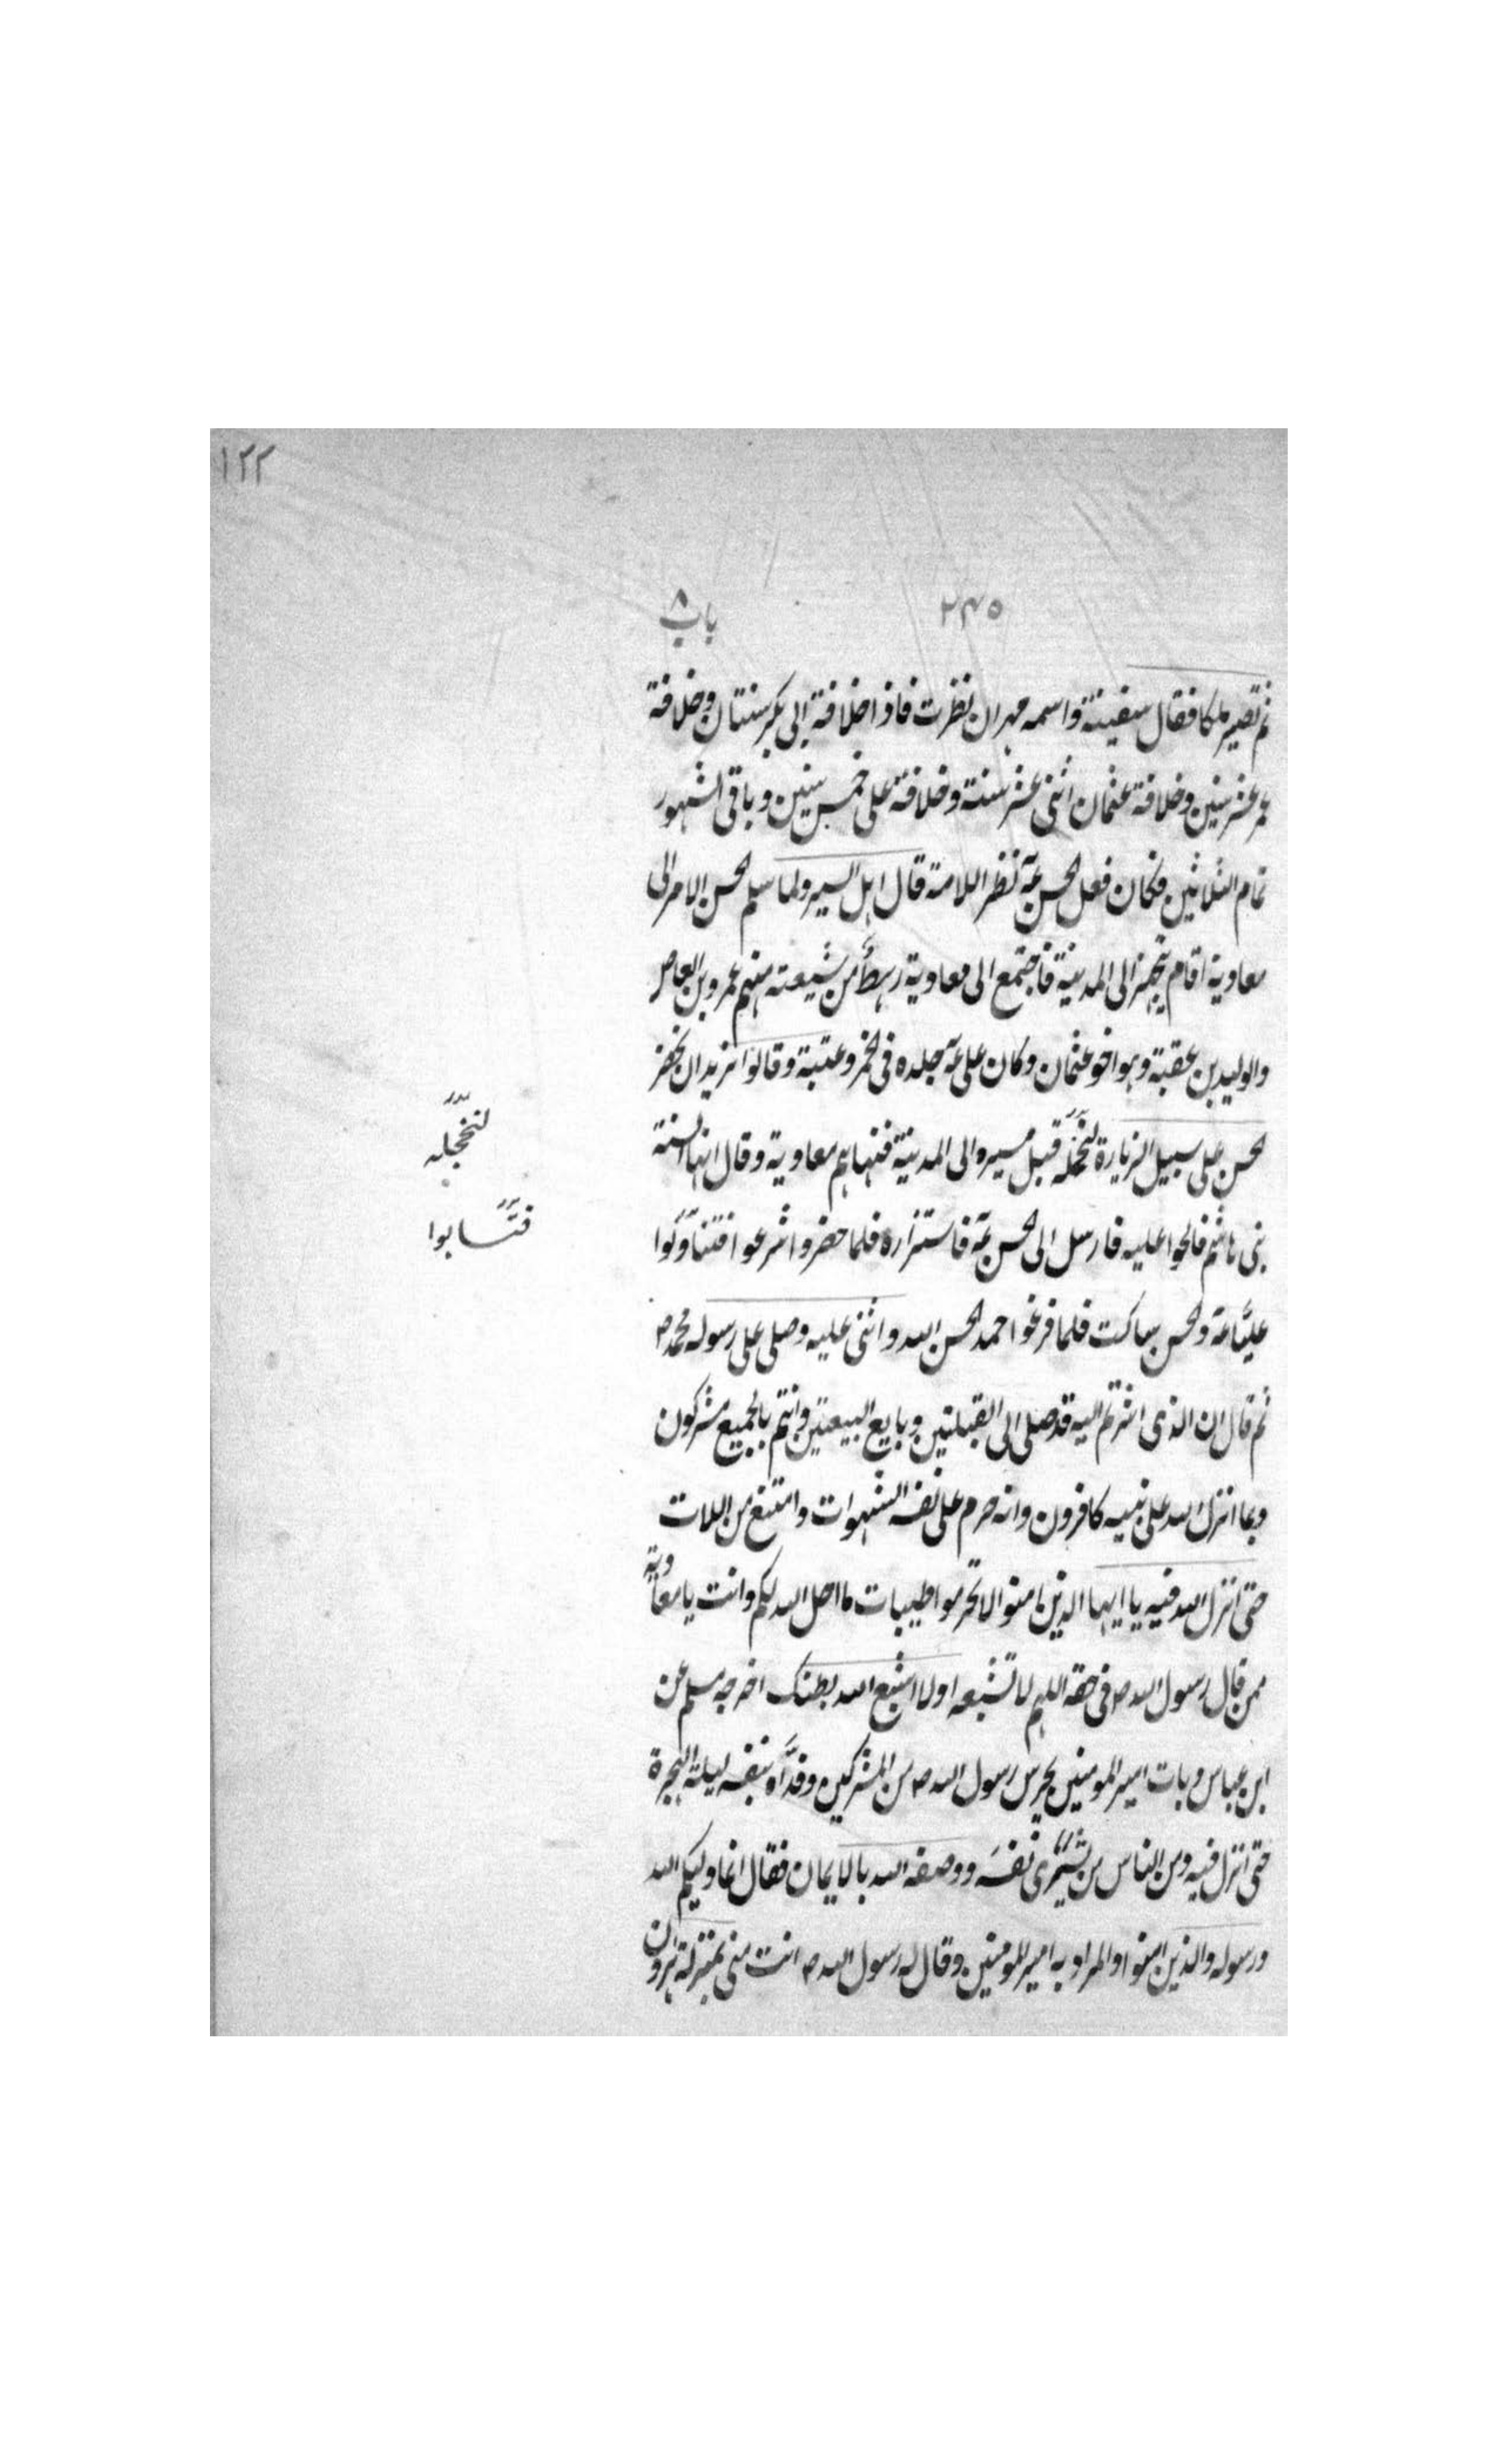 ١٢٢
٢٣٥
باب ٨
ثم تصير ملكا فقال سفينة واسمه مهران نظرت فاذا خلافة ابى بكر سنتان وخلافة
عمر عشر سنين وخلافة عثمان اثنى عشر سنة وخلافة على خمس سنين وباقى الشهور
تمام الثلاثين فكان فعل الحسن عم نظرا للامة قال اهل السير ولما سلم الحسن الامر الى
معاوية اقام يتجهز الى المدينة فاجتمع الى معاوية رهط من شيعته منهم عمرو بن العاص
والوليد بن عقبة وهو اخو عثمان وكان على عم جلده فى الخمر وعتبة وقالوا نريد ان تحضر
الحسن على سبيل الزيارة لنخجله قبل مسيره الى المدينة فنهاهم معاوية وقال انها السنة
بنى هاشم فالحوا عليه فارسل الى الحسن عم فاستزاره فلما حضر واشرعوا فتناولوا
عليا عم والحسن ساكت فلما فرغوا حمد الحسن الله واثنى عليه وصلى على رسوله محمد ص
ثم قال ان الذى اشرتم اليه قد صلى الى القبلتين وبايع البيعتين وانتم بالجميع مشركون
وبما انزل الله على نبيه كافرون وانه حرم على نفسه الشهوات وامتنع من اللات
حتى انزل الله فيه يا ايها الذين امنوا لا تحرموا طيبات ما احل الله لكم وانت يا معاوية
ممن قال رسول الله ص فى حقه اللهم لا تشبعه اولا اشبع الله بطنك اخرجه مسلم عن
ابن عباس وبات امير المومنين يحرس رسول الله ص من المشركين وفداه بنفسه ليلة الهجرة
حتى انزل فيه ومن الناس من يشترى نفسه ووصفه الله بالايمان فقال انما وليكم الله
ورسوله والذين امنوا والمراد به امير المومنين وقال له رسول الله ص انت منى بمنزلة هرون
لنخجله
فتسابوا